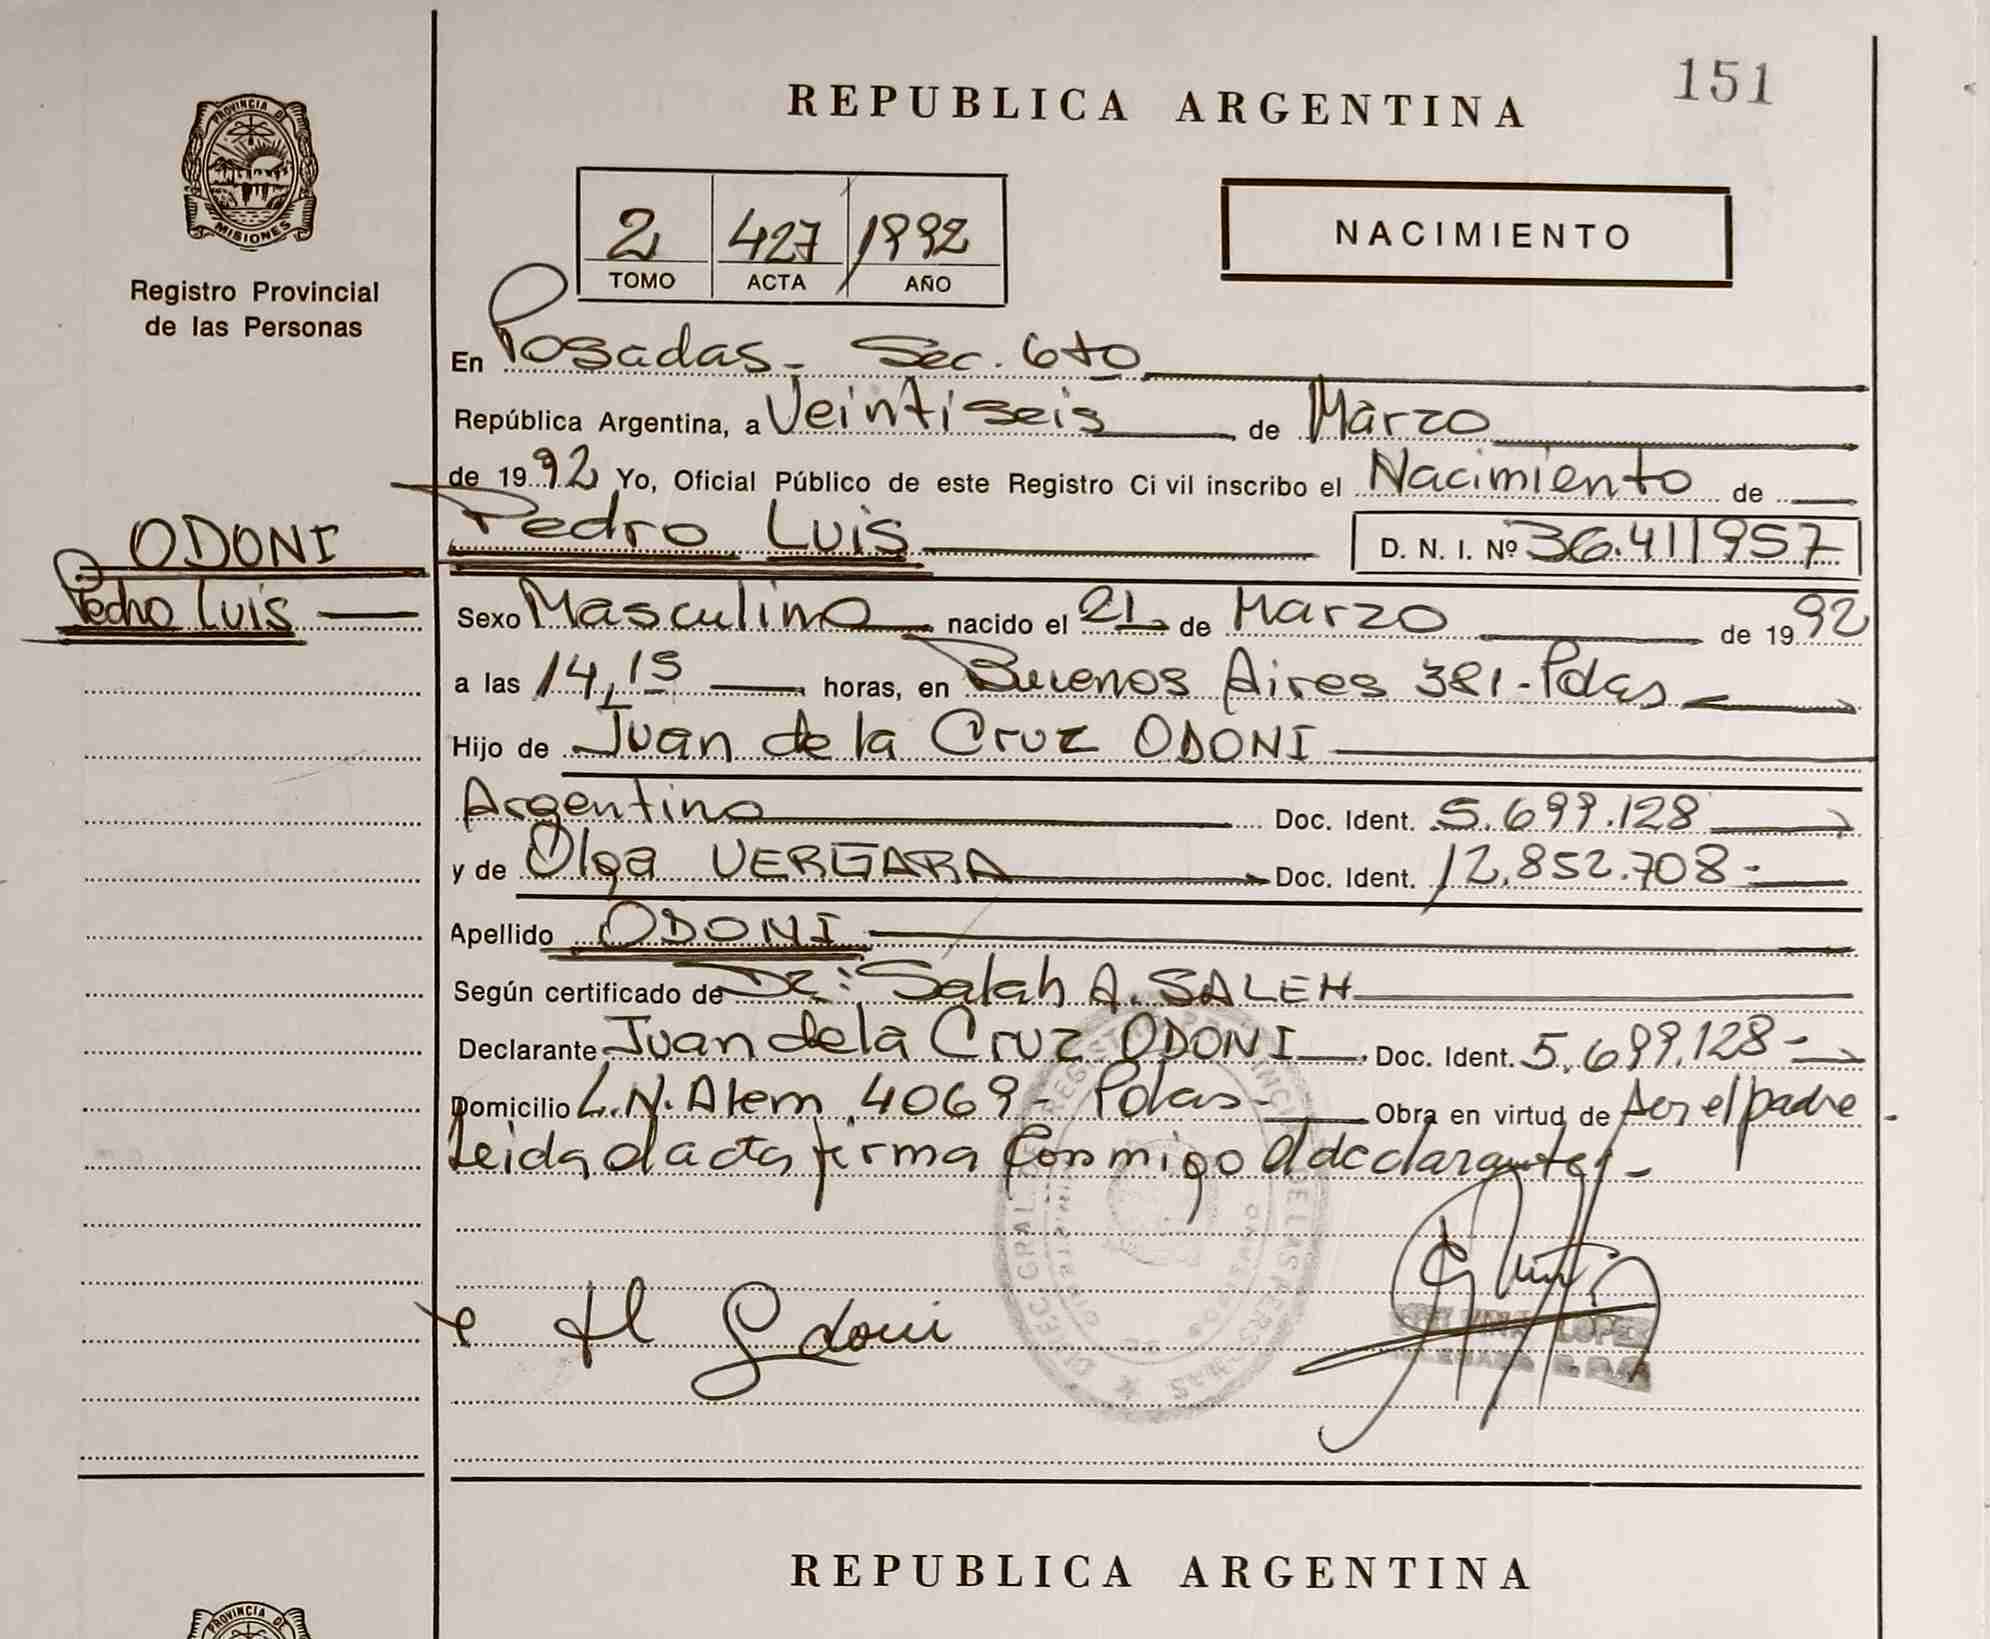 151
REPUBLICA ARGENTINA
PROVINCIA DE
MISIONES
Registro Provincial
de las Personas
2 427 1992
TOMO ACTA AÑO
NACIMIENTO
En Posadas - Sec. 6to
República Argentina, a Veintiseis de Marzo
de 1992 Yo, Oficial Público de este Registro Civil inscribo el Nacimiento de
ODONI
Pedro Luis
Pedro Luis D. N. I. Nº 36.411957
Sexo Masculino nacido el 21 de Marzo de 1992
a las 14,15 horas, en Buenos Aires 381 - Pdas
Hijo de Juan de la Cruz ODONI
Argentino Doc. Ident. 5.699.128
y de Olga VERGARA Doc. Ident. 12.852.708 -
Apellido ODONI
Según certificado de Dr: Salah A. SALEH
Declarante Juan de la Cruz ODONI Doc. Ident. 5.699.128 -
Domicilio L.N. Alem 4069 - Pdas - Obra en virtud de ser el padre -
Leida el acta firma conmigo el declarante -
Odoni
LOPEZ
REPUBLICA ARGENTINA
PROVINCIA DE